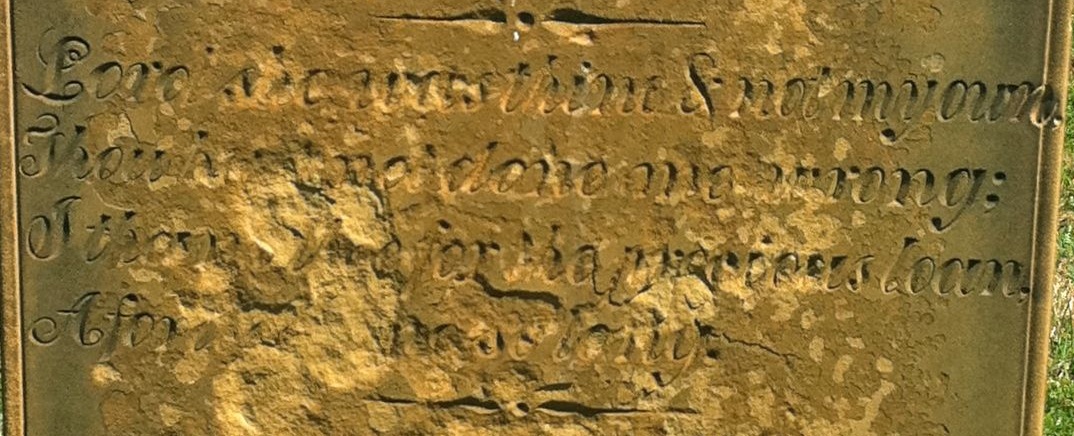 Lord she was thine & not my own,
Thou hast not done me wrong;
I thank thee for the precious loan,
Afforded me so long.